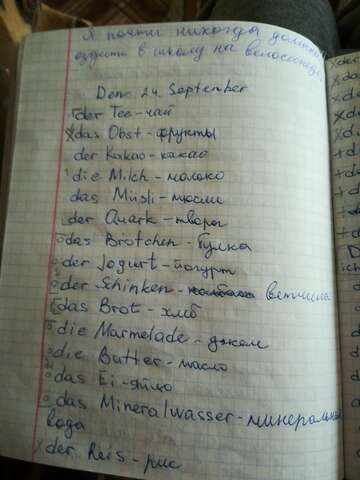 Я почти никогда должен
ездить в школу на велосипеде
Den 24. September
der Tee - чай
das Obst - фрукты
der Kakao - какао
die Milch - молоко
das Müsli - мюсли
der Quark - творог
das Brötchen - булка
der Jogurt - йогурт
der Schinken - ветчина
das Brot - хлеб
die Marmelade - джем
die Butter - масло
das Ei - яйцо
das Mineralwasser - минеральная
вода
der Reis - рис